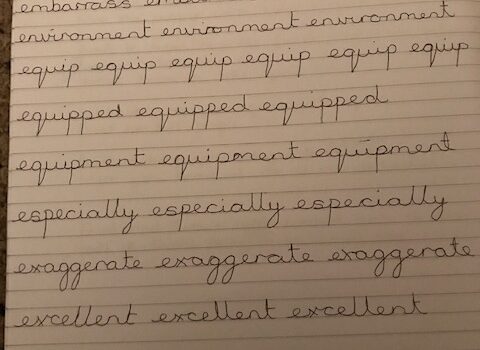 embarrass
environment environment environment
equip equip equip equip equip equip
equipped equipped equipped
equipment equipment equipment
especially especially especially
exaggerate exaggerate exaggerate
excellent excellent excellent